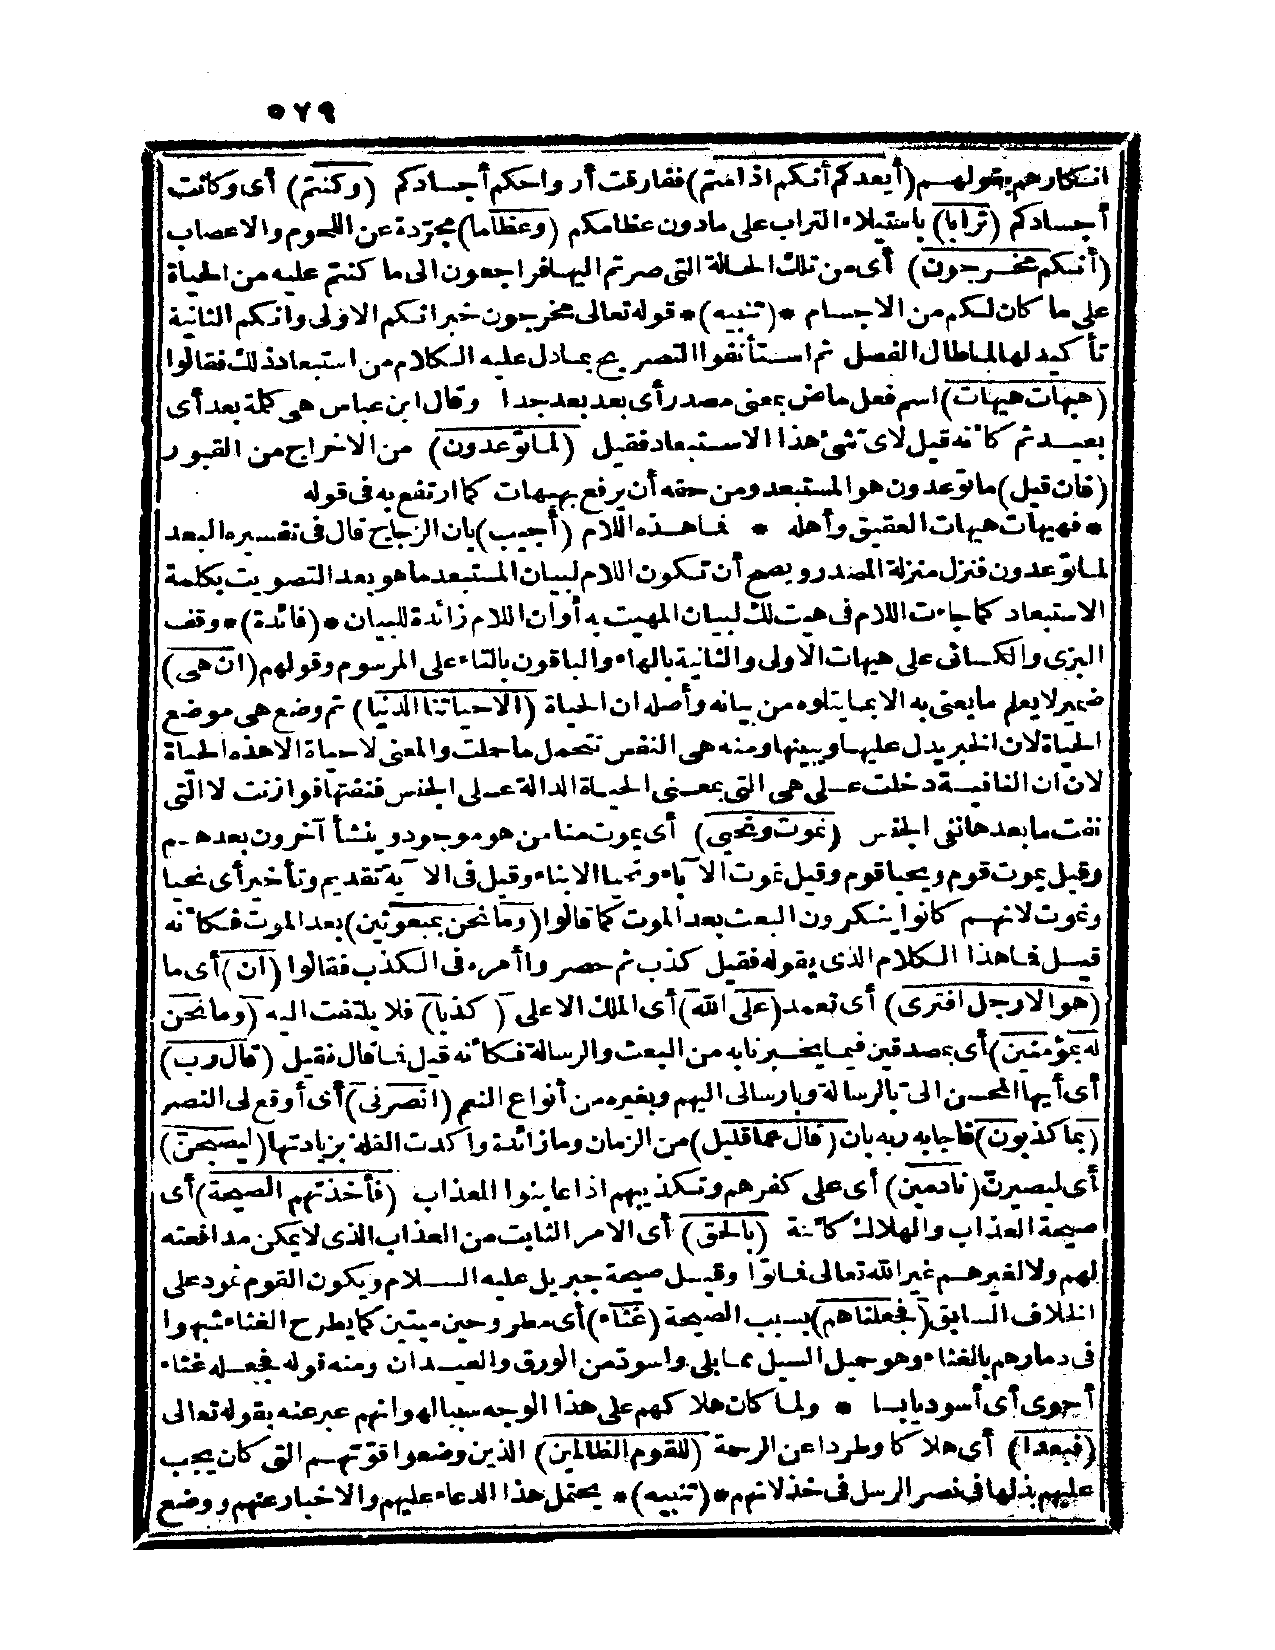 ٥٧٩
انكارهم بقولهم (أيعدكم أنكم اذا متم) ففارقت أرواحكم أجسادكم (وكنتم) أى وكانت
أجسادكم (ترابا) باستيلاء التراب على مادون عظامكم (وعظاما) مجرّدة عن اللحوم والاعصاب
(أنكم مخرجون) أى من تلك الحالة التى صرتم اليها فراجعون الى ما كنتم عليه من الحياة
على ما كان لكم من الاجسام * (تنبيه) * قوله تعالى مخرجون خبر أنكم الاولى وأنكم الثانية
تأكيد لها لما طال الفصل ثم استأنفوا التصريح بما دل عليه الكلام من استبعاد ذلك فقالوا
(هيهات هيهات) اسم فعل ماض بمعنى مصدر أى بعد بعد جدا وقال ابن عباس هى كلمة بعد أى
بعيد ثم كأنه قيل لاىّ شئ هذا الاستبعاد فقيل (لما توعدون) من الاخراج من القبور
(فان قيل) ما توعدون هو المستبعد ومن حقه أن يرفع بهيهات كما ارتفع به فى قوله
* فهيهات هيهات العقيق وأهله * فما هذه اللام (أجيب) بان الزجاج قال فى تفسيره البعد
لما توعدون فنزل منزلة المصدر ويصح أن تكون اللام لبيان المستبعد ما هو بعد التصويت بكلمة
الاستبعاد كما جاءت اللام فى هيت لك لبيان المهيت به أو ان اللام زائدة للبيان * (فائدة) * وقف
البزى والكسائى على هيهات الاولى والثانية بالهاء والباقون بالتاء على المرسوم وقولهم (ان هى)
ضمير لا يعلم ما يعنى به الا بما يتلوه من بيانه وأصله ان الحياة (الا حياتنا الدنيا) ثم وضع هى موضع
الحياة لان الخبر يدل عليها ويبينها ومنه هى النفس تتحمل ما حملت والمعنى لا حياة الا هذه الحياة
لان ان النافية دخلت على هى التى بمعنى الحياة الدالة على الجنس فنفتها فوازنت لا التى
نفت ما بعدها نفى الجنس (نموت ونحيى) أى يموت منا من هو موجود وينشأ آخرون بعدهم
وقيل يموت قوم ويحيا قوم وقيل نموت الآباء ونحيا الابناء وقيل فى الآية تقديم وتأخير أى نحيا
ونموت لانهم كانوا ينكرون البعث بعد الموت كما قالوا (وما نحن بمبعوثين) بعد الموت فكأنه
قيل فما هذا الكلام الذى يقوله فقيل كذب ثم حصروا أمره فى الكذب فقالوا (ان) أى ما
(هو الا رجل افترى) أى تعمد (على الله) أى الملك الاعلى (كذبا) فلا يلتفت اليه (وما نحن
له بمؤمنين) أى بمصدقين فيما يخبرنا به من البعث والرسالة فكأنه قيل فما قال فقيل (قال رب)
أى أيها المحسن الىّ بالرسالة وبارسالى اليهم وبغيره من أنواع النعم (انصرنى) أى أوقع لى النصر
(بما كذبون) فأجابه ربه بان (قال عما قليل) من الزمان وما زائدة وأكدت القلة بزيادتها (ليصبحن)
أى ليصيرنّ (نادمين) أى على كفرهم وتكذيبهم اذا عاينوا العذاب (فأخذتهم الصيحة) أى
صيحة العذاب والهلاك كائنة (بالحق) أى الامر الثابت من العذاب الذى لا يمكن مدافعته
لهم ولا لغيرهم غير الله تعالى فماتوا وقيل صيحة جبريل عليه السلام ويكون القوم ثمود على
الخلاف السابق (فجعلناهم) بسبب الصيحة (غثاء) أى مطروحين ميتين كما يطرح الغثاء شبهوا
فى دمارهم بالغثاء وهو حميل السيل مما بلى واسودّ من الورق والعيدان ومنه قوله فجعله غثاء
أحوى أى أسود يابسا * ولما كان هلاكهم على هذا الوجه سببا لهوانهم عبر عنه بقوله تعالى
(فبعدا) أى هلاكا وطردا عن الرحمة (للقوم الظالمين) الذين وضعوا قوّتهم التى كان يجب
عليهم بذلها فى نصر الرسل فى خذلانهم * (تنبيه) * يحتمل هذا الدعاء عليهم والاخبار عنهم ووضع